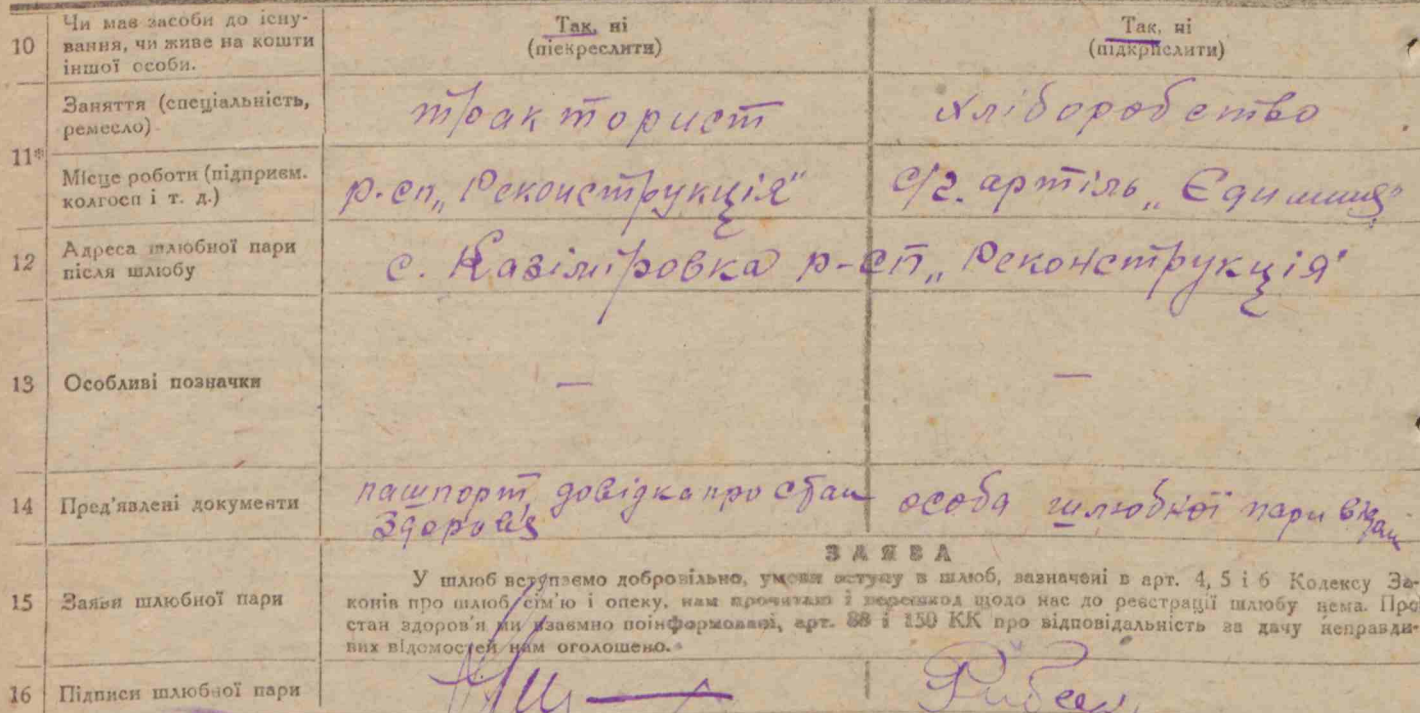 10 Чи має засоби до існу-
вання, чи живе на кошти
іншої особи.
Так, ні
(піекреслити)
Так, ні
(підкрислити)
11* Заняття (спеціальність,
ремесло)
тракторист
хліборобство
Місце роботи (підприєм.
колгосп і т. д.)
р-сп „Реконструкція"
с/г. артіль „
12 Адреса шлюбної пари
після шлюбу
с. Казіміровка р-сп „Реконструкція"
13 Особливі позначки
—
—
14 Пред'явлені документи
пашпорт, довідка про стан
здоров'я
особа шлюбної пари
ЗАЯВА
15 Заяви шлюбної пари
У шлюб вступаємо добровільно, умови вступу в шлюб, зазначені в арт. 4, 5 і 6 Кодексу За-
конів про шлюб сім'ю і опеку, нам прочитано і перешкод щодо нас до реєстрації шлюбу нема. Про
стан здоров'я ми взаємно поінформовані, арт. 88 і 150 КК про відповідальність за дачу неправди-
вих відомостей нам оголошено.
16 Підписи шлюбної пари